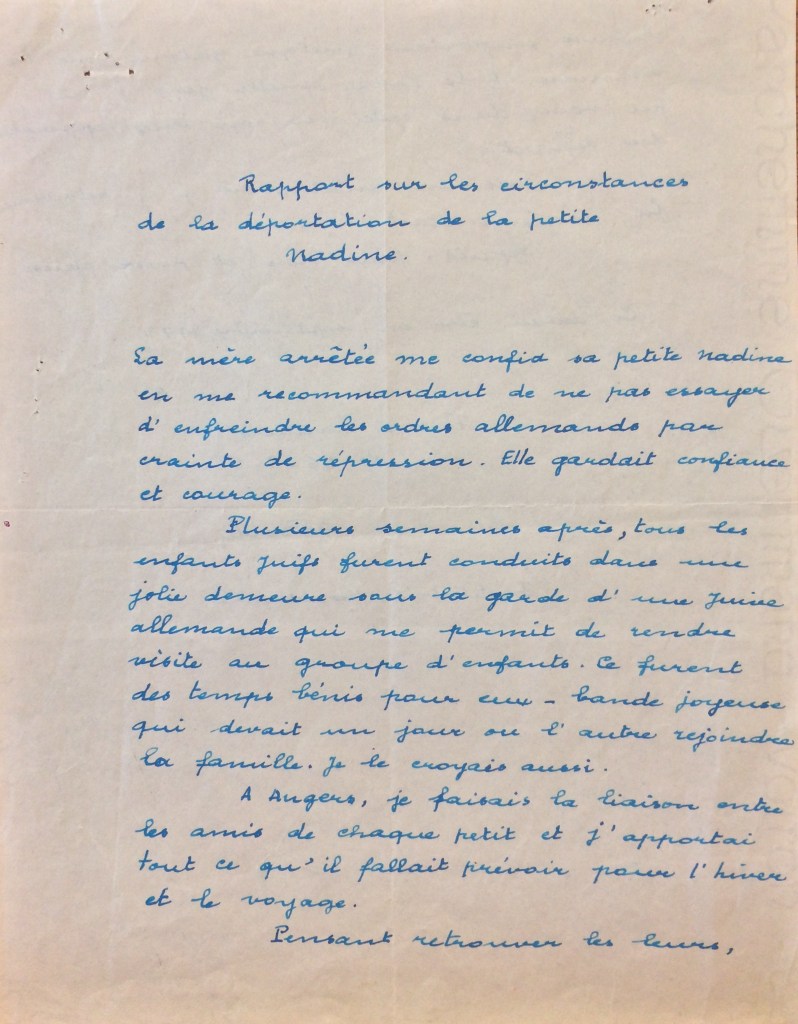 Rapport sur les circonstances
de la déportation de la petite
Nadine.
La mère arrêtée me confia sa petite Nadine
en me recommandant de ne pas essayer
d'enfreindre les ordres allemands par
crainte de répression. Elle gardait confiance
et courage.
Plusieurs semaines après, tous les
enfants Juifs furent conduits dans une
jolie demeure sous la garde d'une Juive
allemande qui me permit de rendre
visite au groupe d'enfants. Ce furent
des temps bénis pour eux - bande joyeuse
qui devait un jour ou l'autre rejoindre
la famille. Je le croyais aussi.
A Angers, je faisais la liaison entre
les amis de chaque petit et j'apportai
tout ce qu'il fallait prévoir pour l'hiver
et le voyage.
Pensant retrouver les leurs,